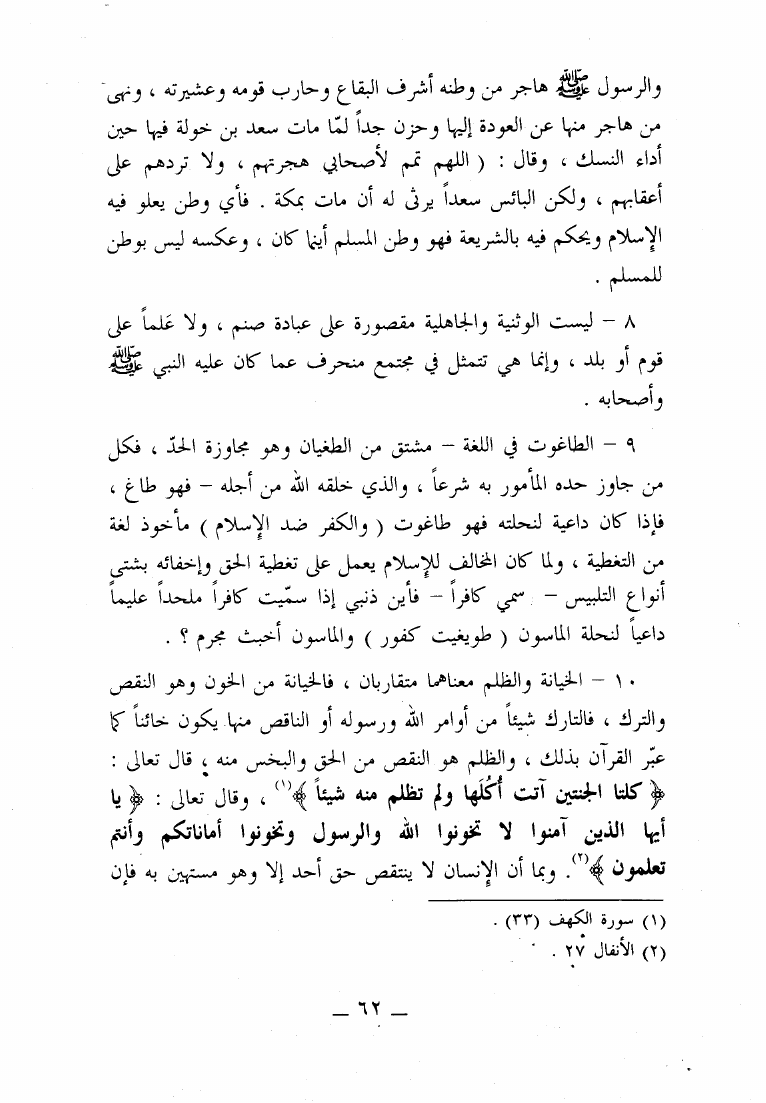 والرسول ﷺ هاجر من وطنه أشرف البقاع وحارب قومه وعشيرته ، ونهى
من هاجر منها عن العودة إليها وحزن جداً لمّا مات سعد بن خولة فيها حين
أداء النسك ، وقال : ( اللهم تمم لأصحابي هجرتهم ، ولا تردهم على
أعقابهم ، ولكن البائس سعداً يرثى له أن مات بمكة . فأي وطن يعلو فيه
الإسلام ويحكم فيه بالشريعة فهو وطن المسلم أينما كان ، وعكسه ليس بوطن
للمسلم .
٨ – ليست الوثنية والجاهلية مقصورة على عبادة صنم ، ولا عَلماً على
قوم أو بلد ، وإنما هي تتمثل في مجتمع منحرف عما كان عليه النبي ﷺ
وأصحابه .
٩ – الطاغوت في اللغة – مشتق من الطغيان وهو مجاوزة الحدّ ، فكل
من جاوز حده المأمور به شرعاً ، والذي خلقه الله من أجله – فهو طاغ ،
فإذا كان داعية لنحلته فهو طاغوت ( والكفر ضد الإسلام ) مأخوذ لغة
من التغطية ، ولما كان المخالف للإسلام يعمل على تغطية الحق وإخفائه بشتى
أنواع التلبيس – سمي كافراً – فأين ذنبي إذا سمّيت كافراً ملحداً عليماً
داعياً لنحلة الماسون ( طويغيت كفور ) والماسون أخبث مجرم ؟ .
١٠ – الخيانة والظلم معناهما متقاربان ، فالخيانة من الخون وهو النقص
والترك ، فالتارك شيئاً من أوامر الله ورسوله أو الناقص منها يكون خائناً كما
عبّر القرآن بذلك ، والظلم هو النقص من الحق والبخس منه ، قال تعالى :
﴿ كلتا الجنتين آتت أُكُلَها ولم تظلم منه شيئاً ﴾(١) ، وقال تعالى : ﴿ يا
أيها الذين آمنوا لا تخونوا الله والرسول وتخونوا أماناتكم وأنتم
تعلمون ﴾(٢). وبما أن الإنسان لا ينتقص حق أحد إلا وهو مستهين به فإن
(١) سورة الكهف (٣٣) .
(٢) الأنفال ٢٧ .
– ٦٢ –